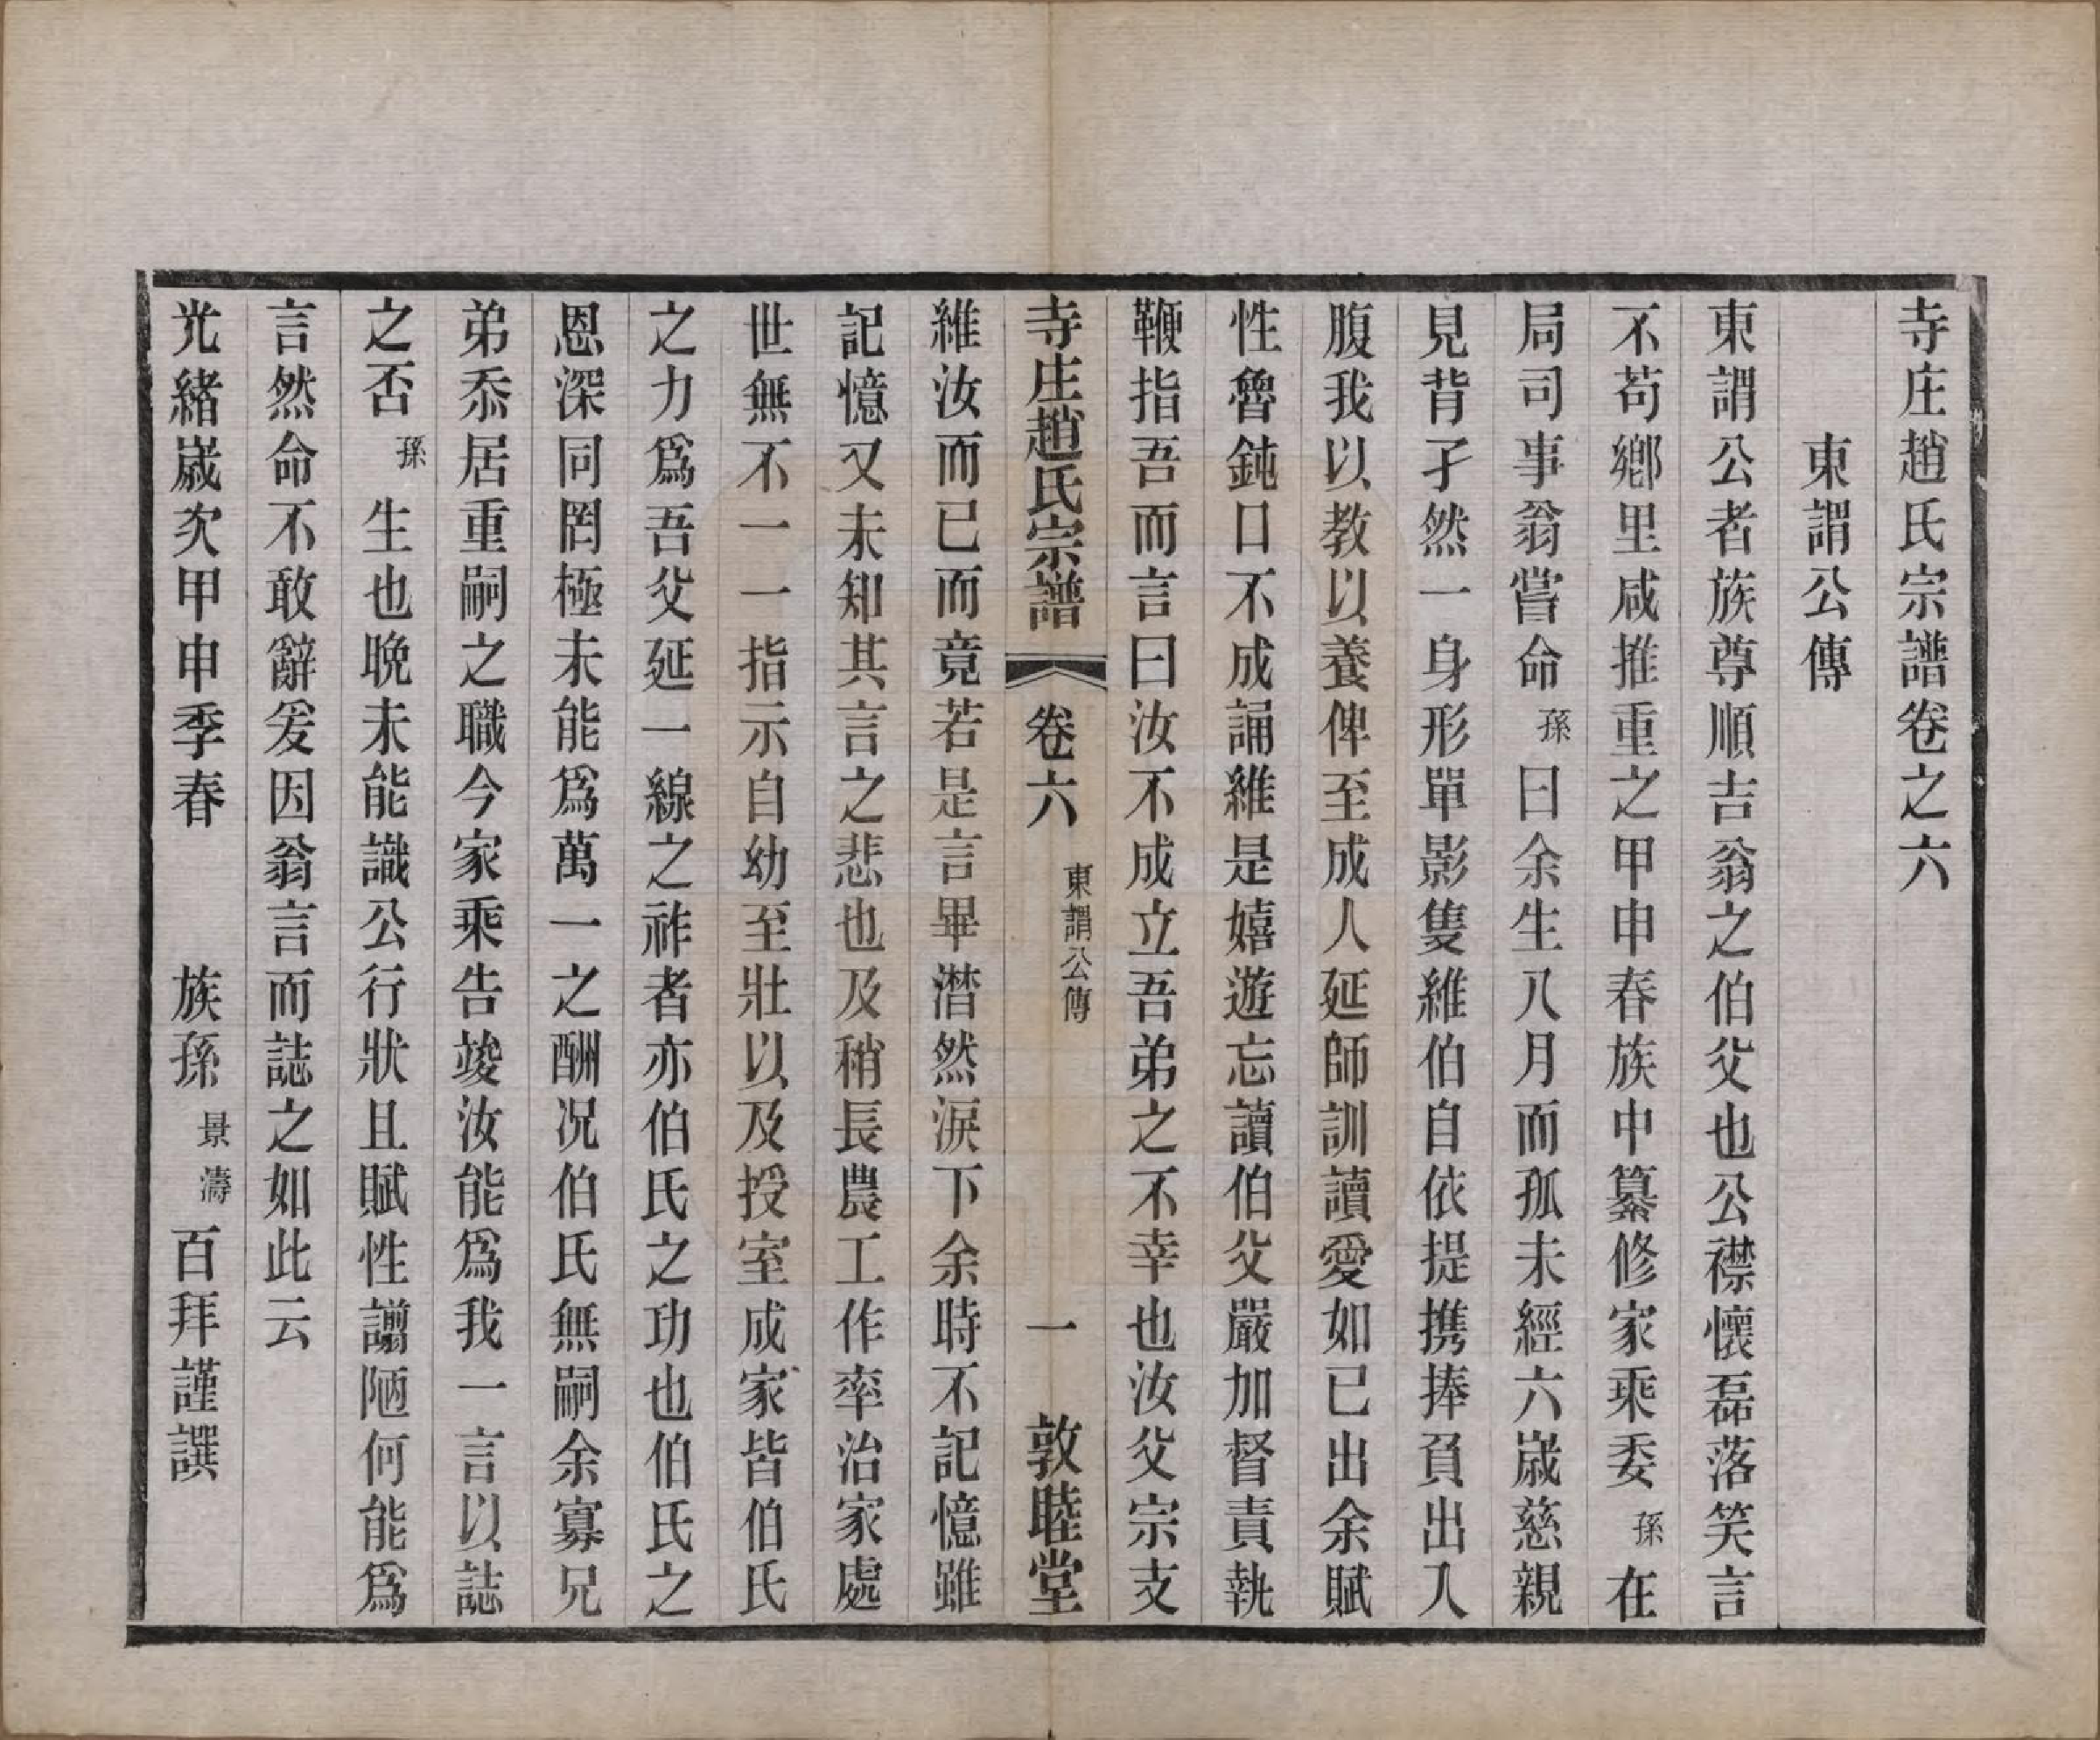 寺庄趙氏宗譜卷之六
東謂公傳
東謂公者族尊順吉翁之伯父也公襟懷磊落笑言
不苟鄉里咸推重之甲申春族中纂修家乘委孫在
局司事翁嘗命孫曰余生八月而孤未經六歲慈親
見背孑然一身形單影隻維伯自依提携捧負出入
腹我以教以養俾至成人延師訓讀愛如已出余賦
性魯鈍口不成誦維是嬉遊忘讀伯父嚴加督責執
鞭指吾而言曰汝不成立吾弟之不幸也汝父宗支
寺庄趙氏宗譜 卷六 東謂公傳 一 敦睦堂
維汝而已而竟若是言畢潸然淚下余時不記憶雖
記憶又未知其言之悲也及稍長農工作率治家處
世無不一一指示自幼至壯以及授室成家皆伯氏
之力為吾父延一線之祚者亦伯氏之功也伯氏之
恩深同罔極未能為萬一之酬况伯氏無嗣余寡兄
弟忝居重嗣之職今家乘告竣汝能為我一言以誌
之否孫生也晚未能識公行狀且賦性謭陋何能為
言然命不敢辭爰因翁言而誌之如此云
光緒歲次甲申季春 族孫景濤百拜謹譔